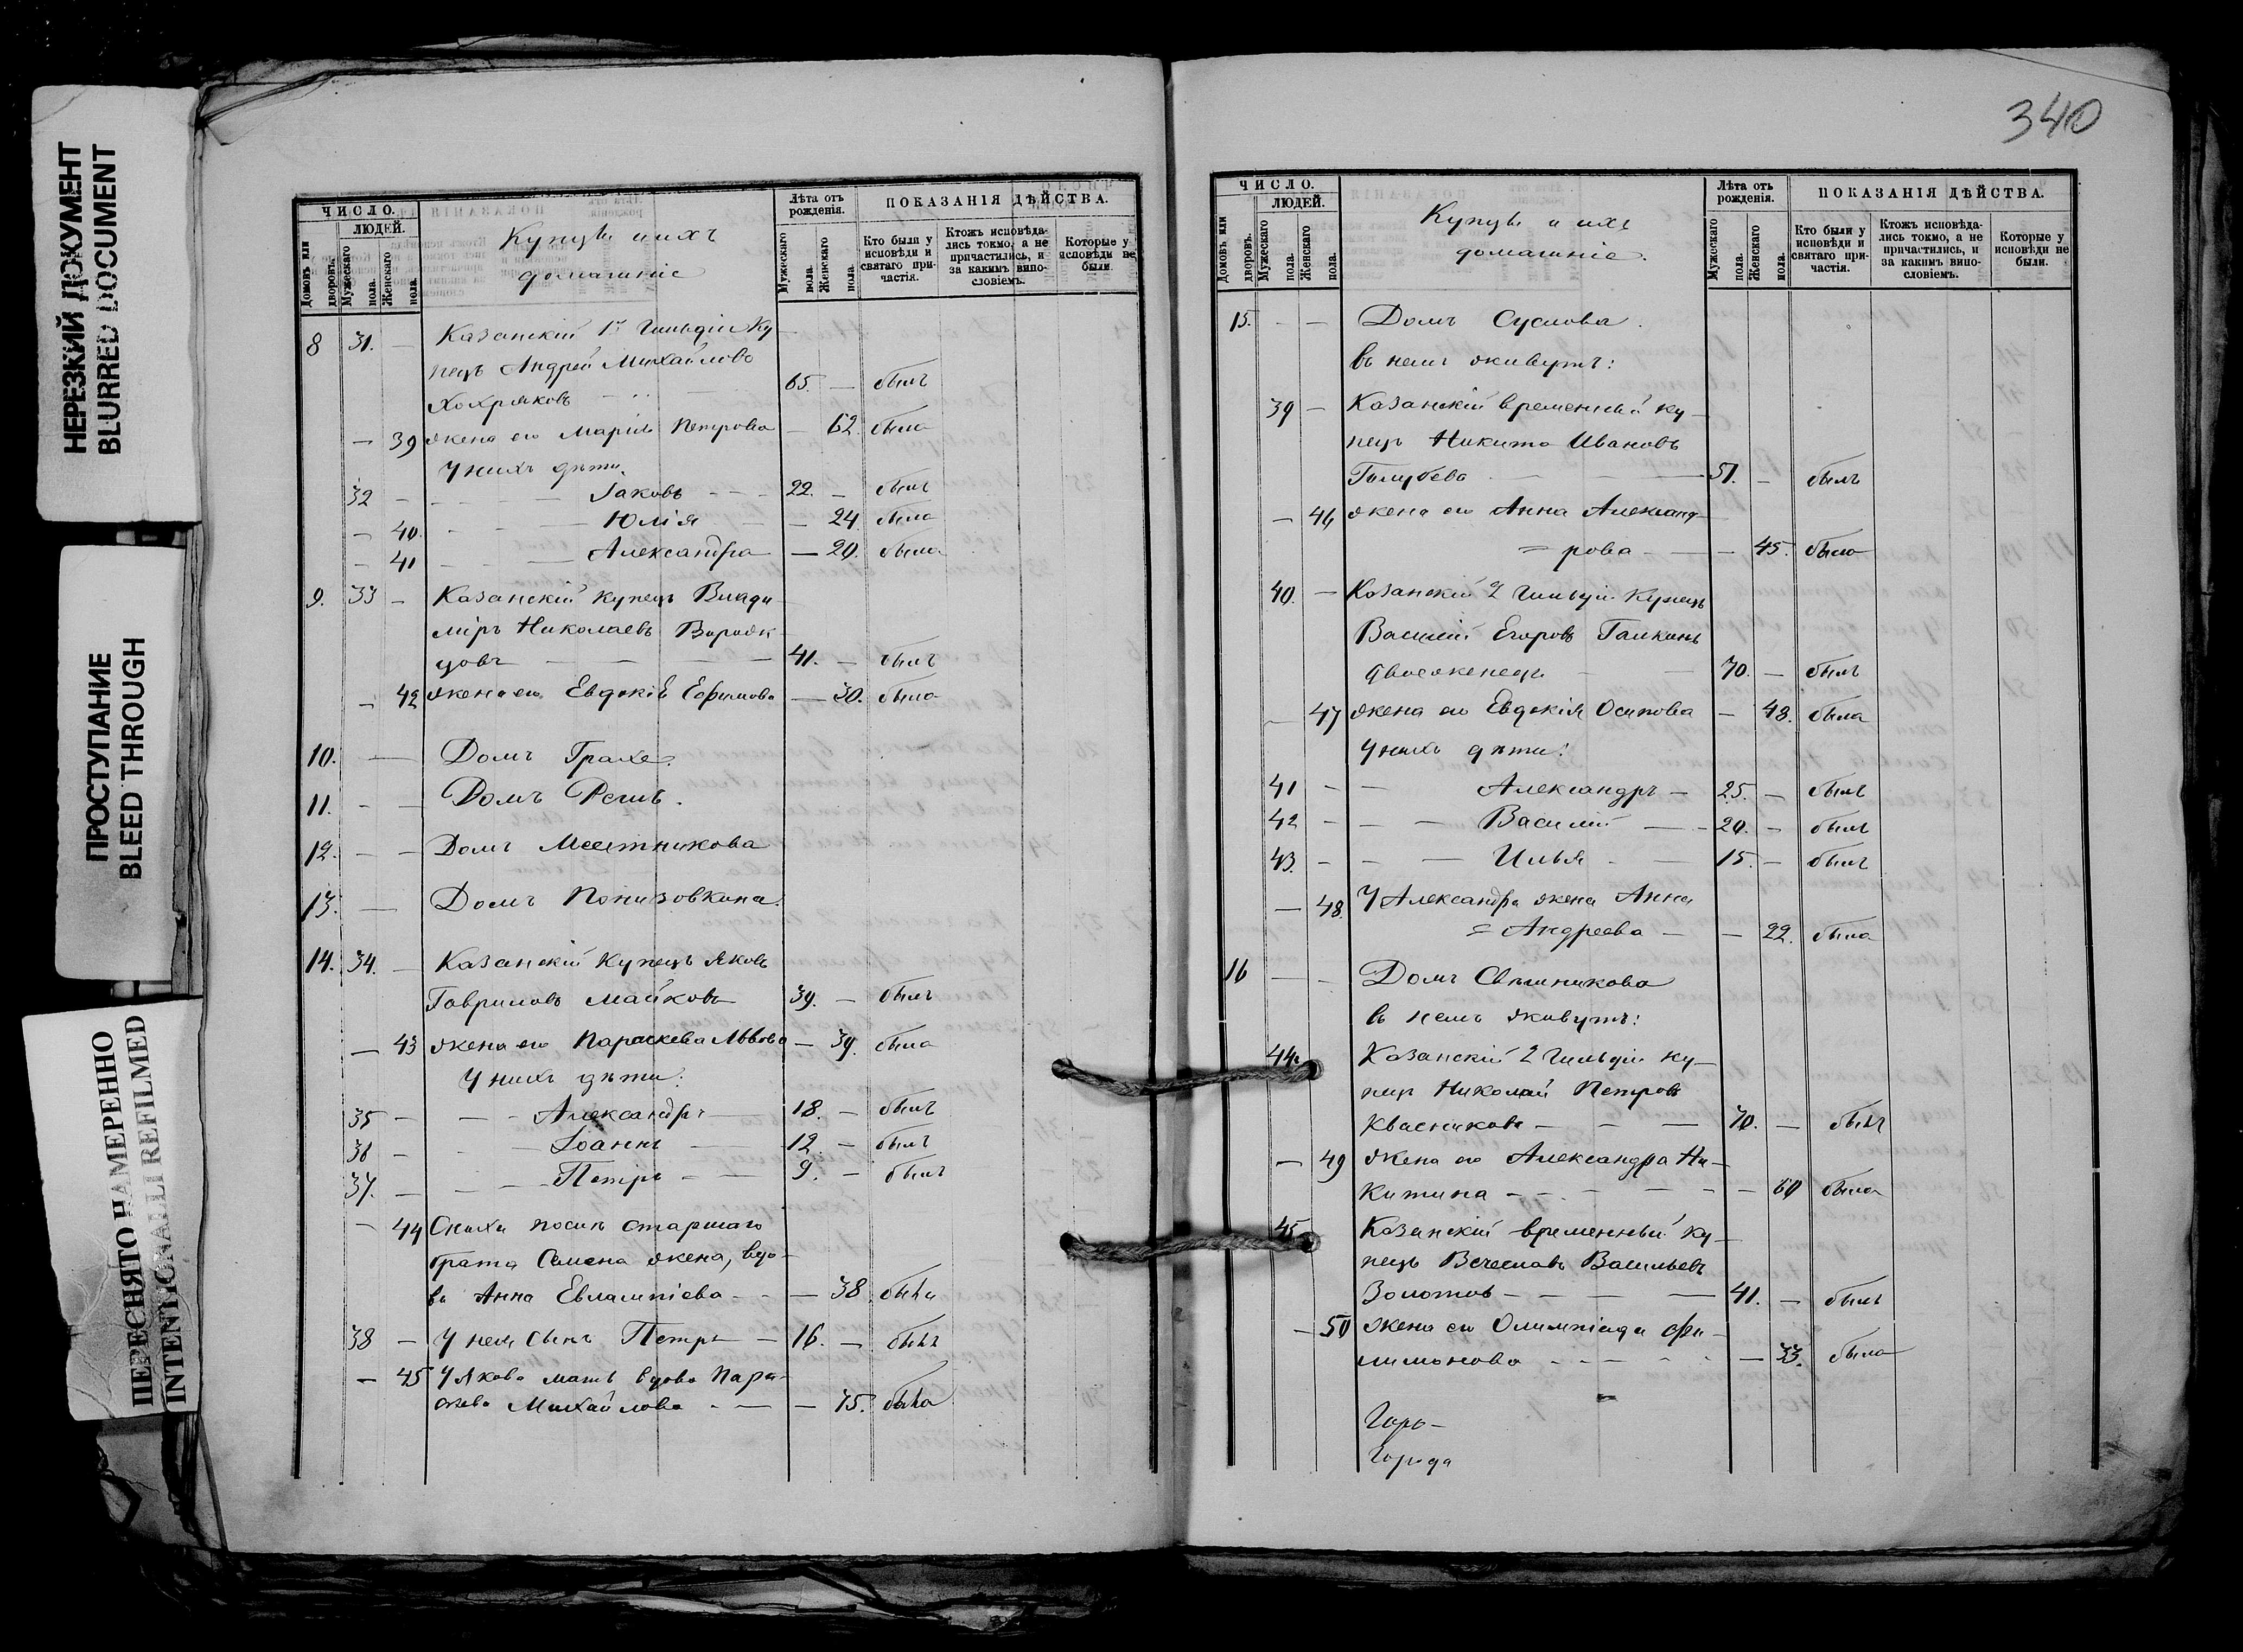 НЕРЕЗКИЙ ДОКУМЕНТ
BLURRED DOCUMENT
ПРОСТУПАНИЕ
BLEED THROUGH
ПЕРЕСНЯТО НАМЕРЕННО
INTENTIONALLI REFILMED
ЧИСЛО.
ЛЮДЕЙ.
Домовъ или дворовъ.
Мужескаго пола.
Женскаго пола.
Купцы и ихъ
домашніе
Лѣта отъ рожденія.
Мужескаго пола.
Женскаго пола.
ПОКАЗАНІЯ ДѢЙСТВА.
Кто были у исповѣди и святаго причастія.
Ктожъ исповѣдались токмо, а не причастились, и за какимъ винословіемъ.
Которые у исповѣди не были.
8 31. — Казанскій 1й Гильдіи Ку
пецъ Андрей Михайловъ
Хохряковъ — 65. — былъ
— 39 жена его Марія Петрова — 62. была
У нихъ дѣти
32 — Іаковъ — 22. — былъ
— 40. Юлія — 24 была
— 41 Александра — 20. была
9. 33 — Казанскій купецъ Влади-
міръ Николаевъ
цовъ — 41. — былъ
— 42 жена его Евдокія Ефимова — 30. была
10. — Домъ Грахе.
11. — — Домъ
12. — — Домъ Местникова
13. — Домъ Понизовкина.
14. 34. — Казанскій Купецъ Яковъ
Гавриловъ Майковъ 39. — былъ
— 43 жена его Параскева Львова — 39. была
У нихъ дѣти:
35 — — — Александръ — 18. — былъ
36 — — Іоаннъ — 12. — былъ
37. — — — Петръ — — 9. — былъ
— 44 Сноха посли старшаго
брата Семена жена, вдо-
ва Анна Евлампіева — — 38 была
38 — У нея сынъ Петръ — 16. — былъ
— 45 У Якова мать вдова Пара-
скева Михайлова — — 75. была
340
ЧИСЛО.
ЛЮДЕЙ.
Домовъ или дворовъ.
Мужескаго пола.
Женскаго пола.
Купцы и ихъ
домашніе.
Лѣта отъ рожденія.
Мужескаго пола.
Женскаго пола.
ПОКАЗАНІЯ ДѢЙСТВА.
Кто были у исповѣди и святаго причастія.
Ктожъ исповѣдались токмо, а не причастились, и за какимъ винословіемъ.
Которые у исповѣди не были.
15. — — Домъ Суслова.
въ немъ живутъ:
39 — Казанскій временный ку-
пецъ Никита Ивановъ
Голубевъ — 51. — былъ
— 46 жена его Анна Александ-
= рова — — 45. была
40. — Казанскій 2 Гильдіи Купецъ
Василій Егоровъ Галкинъ
двоеженецъ — 70. — былъ
— 47 жена его Евдокія Осипова — 48. была
У нихъ дѣти:
41 — — Александръ — 25. — былъ
42 — — — Василій — 20. — былъ
43. — — — Илья — 15. — былъ
— 48. У Александра жена Анна
= Андреева — — 22. была
16 — — Домъ Свѣшникова
въ немъ живутъ:
44. Казанскій 2 Гильдіи ку-
пецъ Николай Петровъ
Квасниковъ — — — 70. — былъ
— 49 жена его Александра Ни-
китина — — — 60 была
45 Казанскій временный ку-
пецъ Вячеславъ Васильевъ
Золотовъ — — — 41. — былъ
— 50 жена его Олимпіада Фи-
лимонова — — — 33. была
Горо-
Города